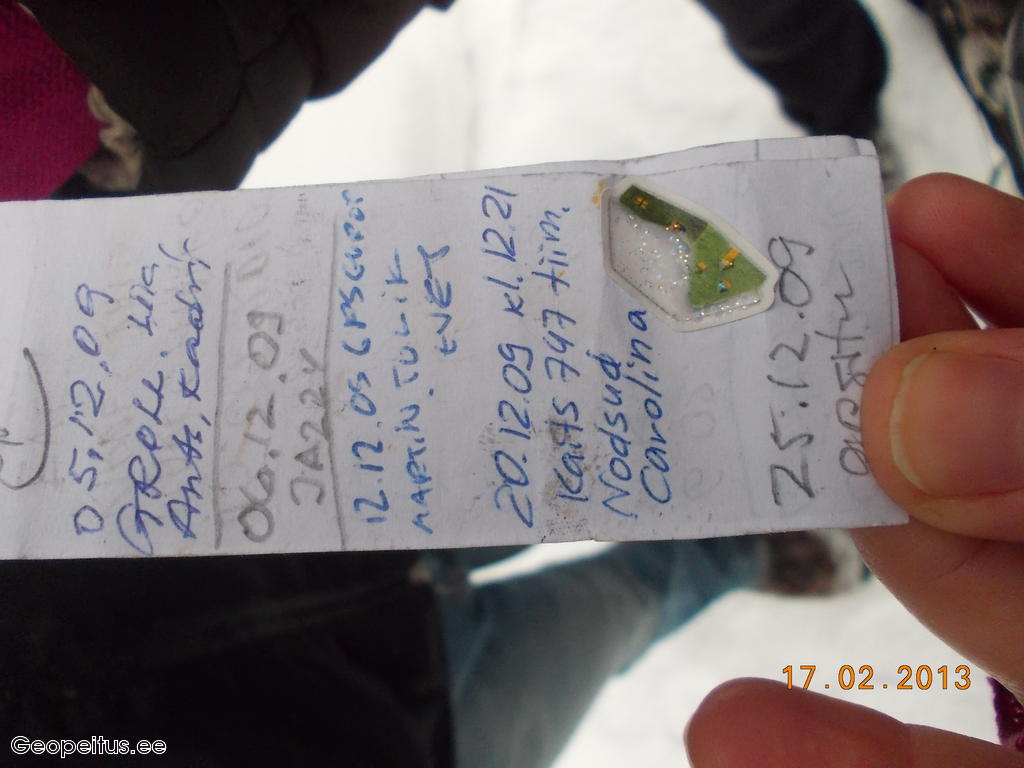 05.12.09
Ants, Kadri
06.12.09
JAZZY
12.12.09
MARTIN.TULIK
20.12.09 kl.12.21
Kaits 747 tiim.
Nodsud
Carolina
25.12.09
17.02.2013
Geopeitus.ee